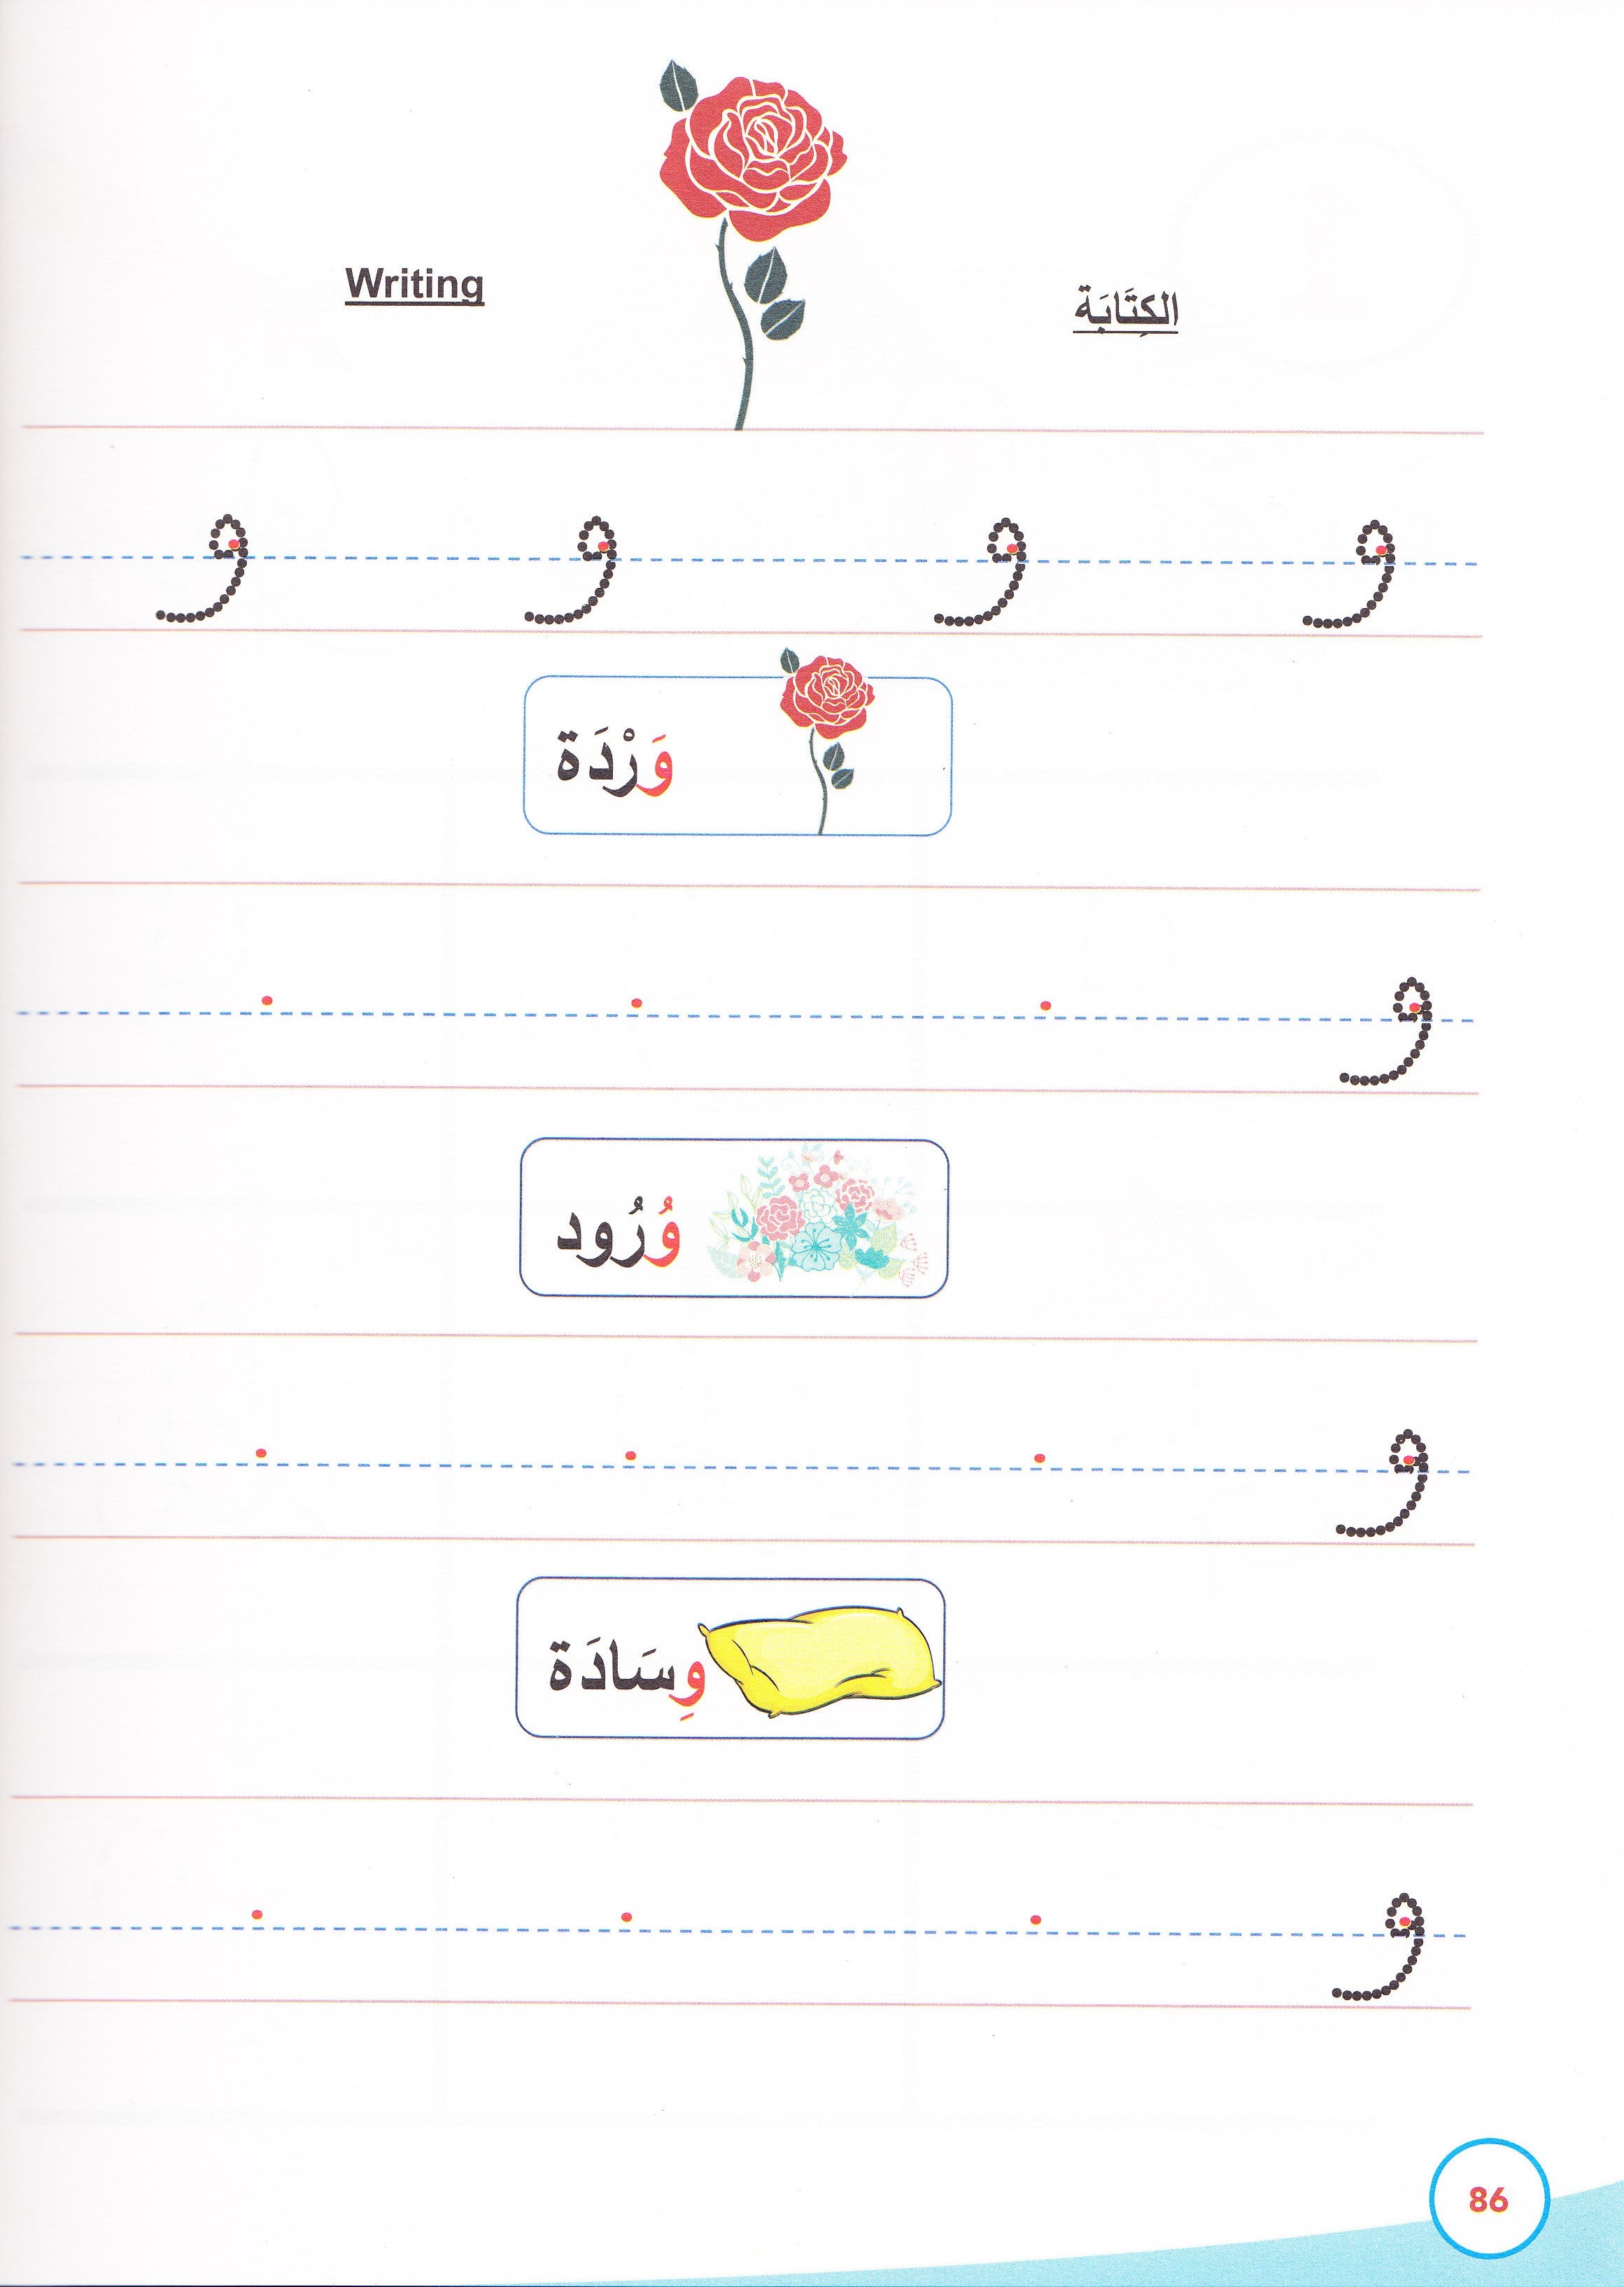 الكِتَابَة
Writing
و و و و
وَرْدَة
و
وُرُود
و
وِسَادَة
و
86